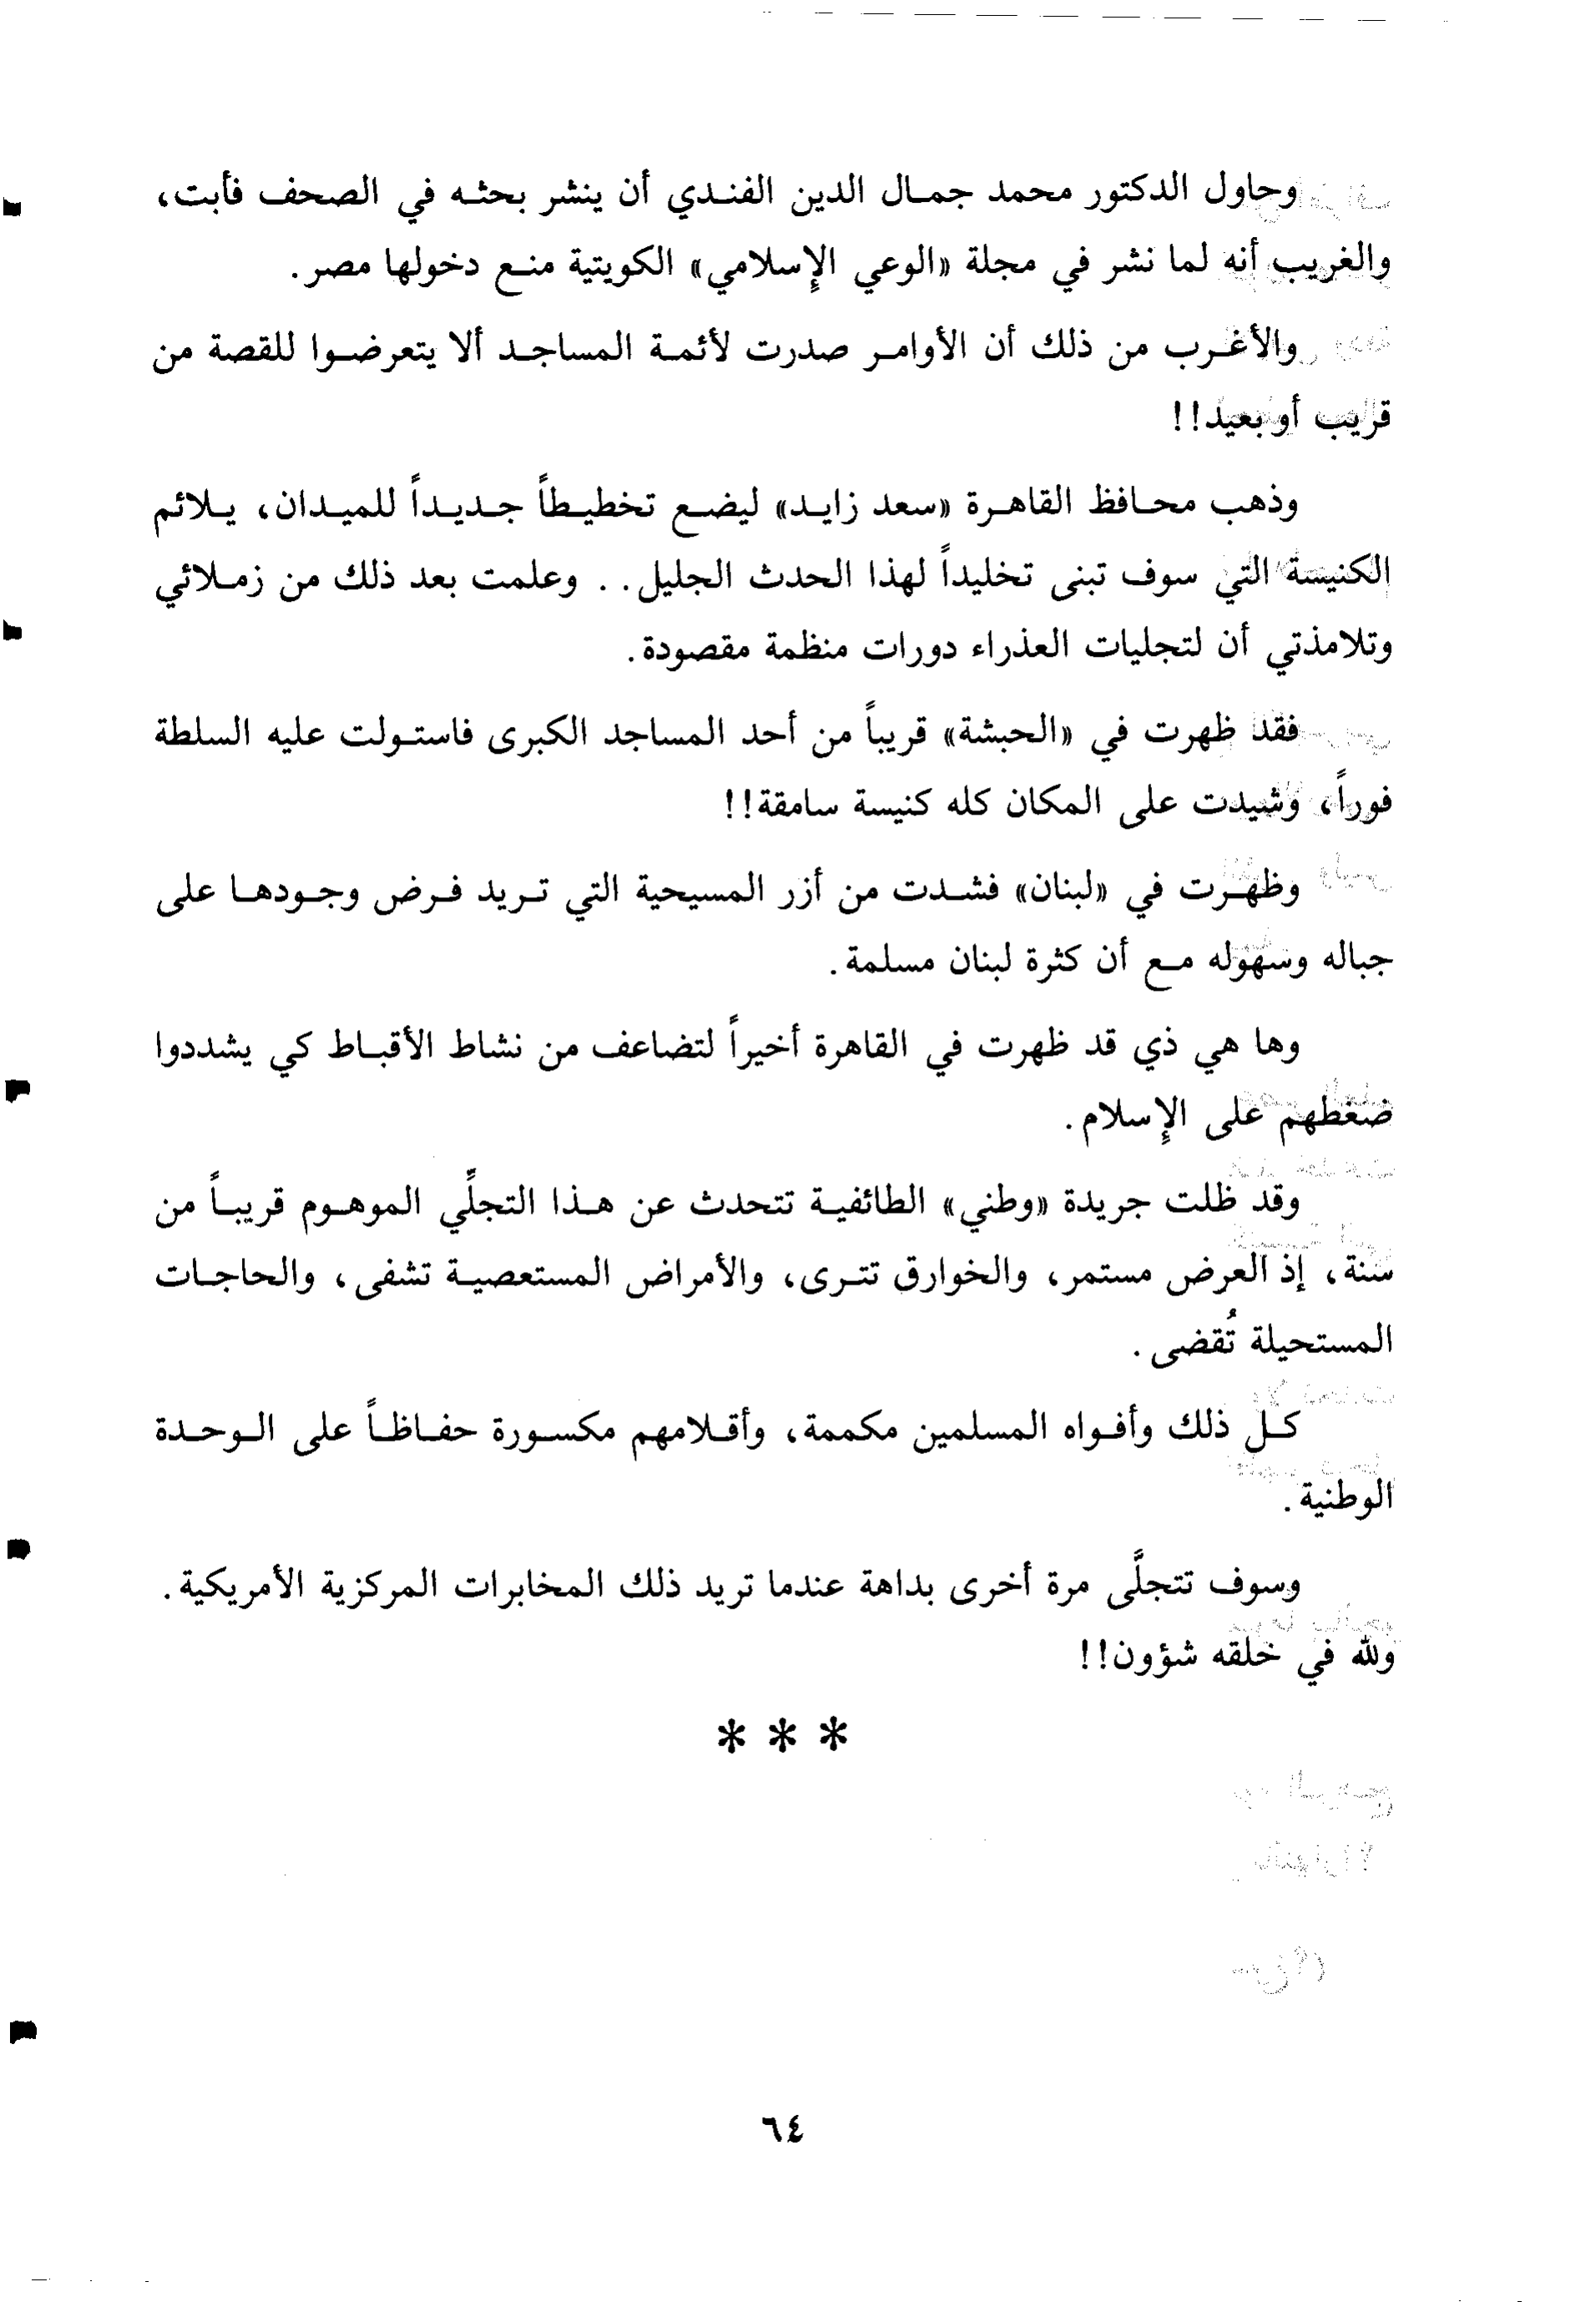 وحاول الدكتور محمد جمال الدين الفندي أن ينشر بحثه في الصحف فأبت،
والغريب أنه لما نشر في مجلة «الوعي الإسلامي» الكويتية منع دخولها مصر.
والأغرب من ذلك أن الأوامر صدرت لأئمة المساجد ألا يتعرضوا للقصة من
قريب أو بعيد!!
وذهب محافظ القاهرة «سعد زايد» ليضع تخطيطاً جديداً للميدان، يلائم
الكنيسة التي سوف تبنى تخليداً لهذا الحدث الجليل.. وعلمت بعد ذلك من زملائي
وتلامذتي أن لتجليات العذراء دورات منظمة مقصودة.
فقد ظهرت في «الحبشة» قريباً من أحد المساجد الكبرى فاستولت عليه السلطة
فوراً، وشيدت على المكان كله كنيسة سامقة!!
وظهرت في «لبنان» فشدت من أزر المسيحية التي تريد فرض وجودها على
جباله وسهوله مع أن كثرة لبنان مسلمة.
وها هي ذي قد ظهرت في القاهرة أخيراً لتضاعف من نشاط الأقباط كي يشددوا
ضغطهم على الإسلام.
وقد ظلت جريدة «وطني» الطائفية تتحدث عن هذا التجلِّي الموهوم قريباً من
سنة، إذ العرض مستمر، والخوارق تترى، والأمراض المستعصية تشفى، والحاجات
المستحيلة تُقضى.
كل ذلك وأفواه المسلمين مكممة، وأقلامهم مكسورة حفاظاً على الوحدة
الوطنية.
وسوف تتجلَّى مرة أخرى بداهة عندما تريد ذلك المخابرات المركزية الأمريكية.
ولله في خلقه شؤون!!
* * *
٦٤